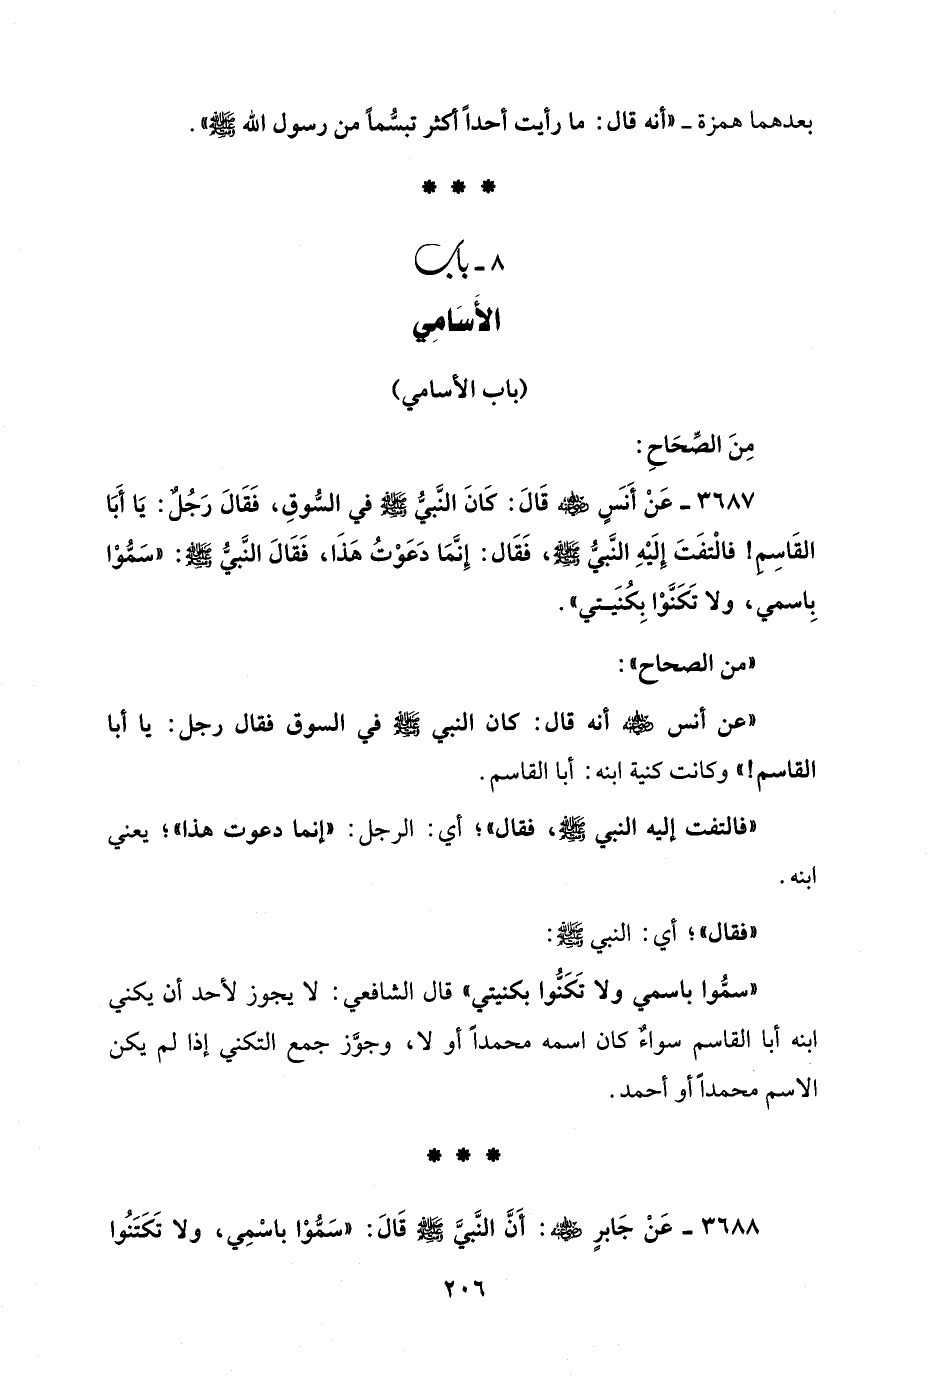 بعدهما همزة ـ «أنه قال: ما رأيت أحداً أكثر تبسُّماً من رسول الله ﷺ».
* * *
٨ ـ باب
الأَسَامِي
(باب الأسامي)
مِنَ الصِّحَاحِ:
٣٦٨٧ ـ عَنْ أَنَسٍ ﷺ قَالَ: كَانَ النَّبيُّ ﷺ في السُّوقِ، فَقَالَ رَجُلٌ: يَا أَبَا
القَاسِمِ! فالْتفَتَ إِلَيْهِ النَّبيُّ ﷺ، فَقَال: إِنَّمَا دَعَوْتُ هَذَا، فَقَالَ النَّبيُّ ﷺ: «سَمُّوْا
بِاسمي، ولا تَكَنَّوْا بِكُنَيـتي».
«من الصحاح»:
«عن أنس رضي الله عنه أنه قال: كان النبي ﷺ في السوق فقال رجل: يا أبا
القاسم!» وكانت كنية ابنه: أبا القاسم.
«فالتفت إليه النبي ﷺ، فقال»؛ أي: الرجل: «إنما دعوت هذا»؛ يعني
ابنه.
«فقال»؛ أي: النبي ﷺ:
«سمُّوا باسمي ولا تَكَنُّوا بكنيتي» قال الشافعي: لا يجوز لأحد أن يكني
ابنه أبا القاسم سواءٌ كان اسمه محمداً أو لا، وجوَّز جمع التكني إذا لم يكن
الاسم محمداً أو أحمد.
* * *
٣٦٨٨ ـ عَنْ جَابرٍ رضي الله عنه: أَنَّ النَّبيَّ ﷺ قَالَ: «سَمُّوْا باسْمِي، ولا تَكْتَنُوا
٢٠٦